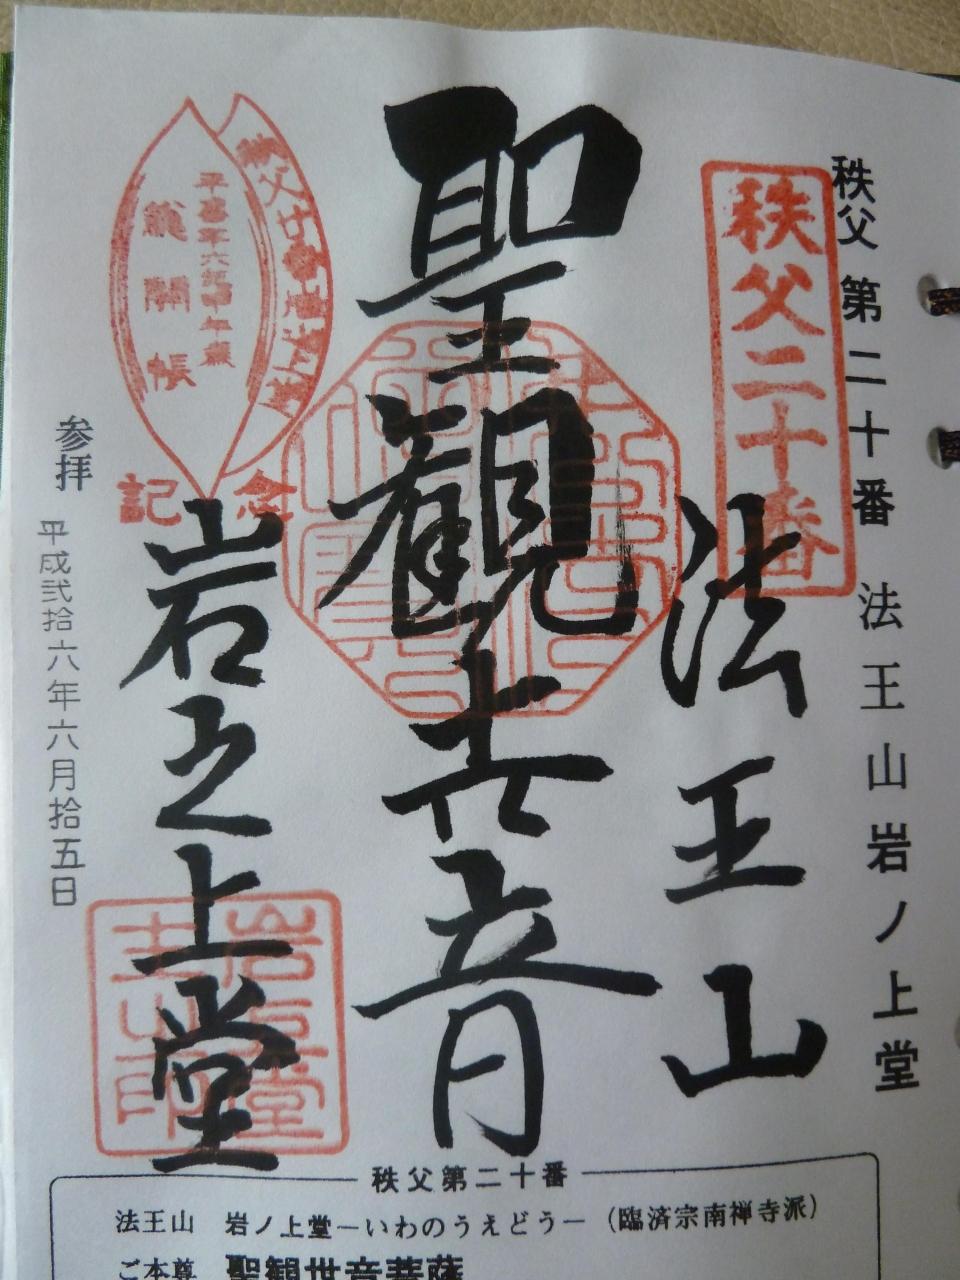 秩父 第二十番 法王山岩ノ上堂
秩父二十番
法王山
聖観世音
岩之上堂
平成二十六年甲午歳
総開帳
記念
参拝 平成弐拾六年六月拾五日
秩父第二十番
法王山 岩ノ上堂―いわのうえどう―（臨済宗南禅寺派）
ご本尊 聖観世音菩薩